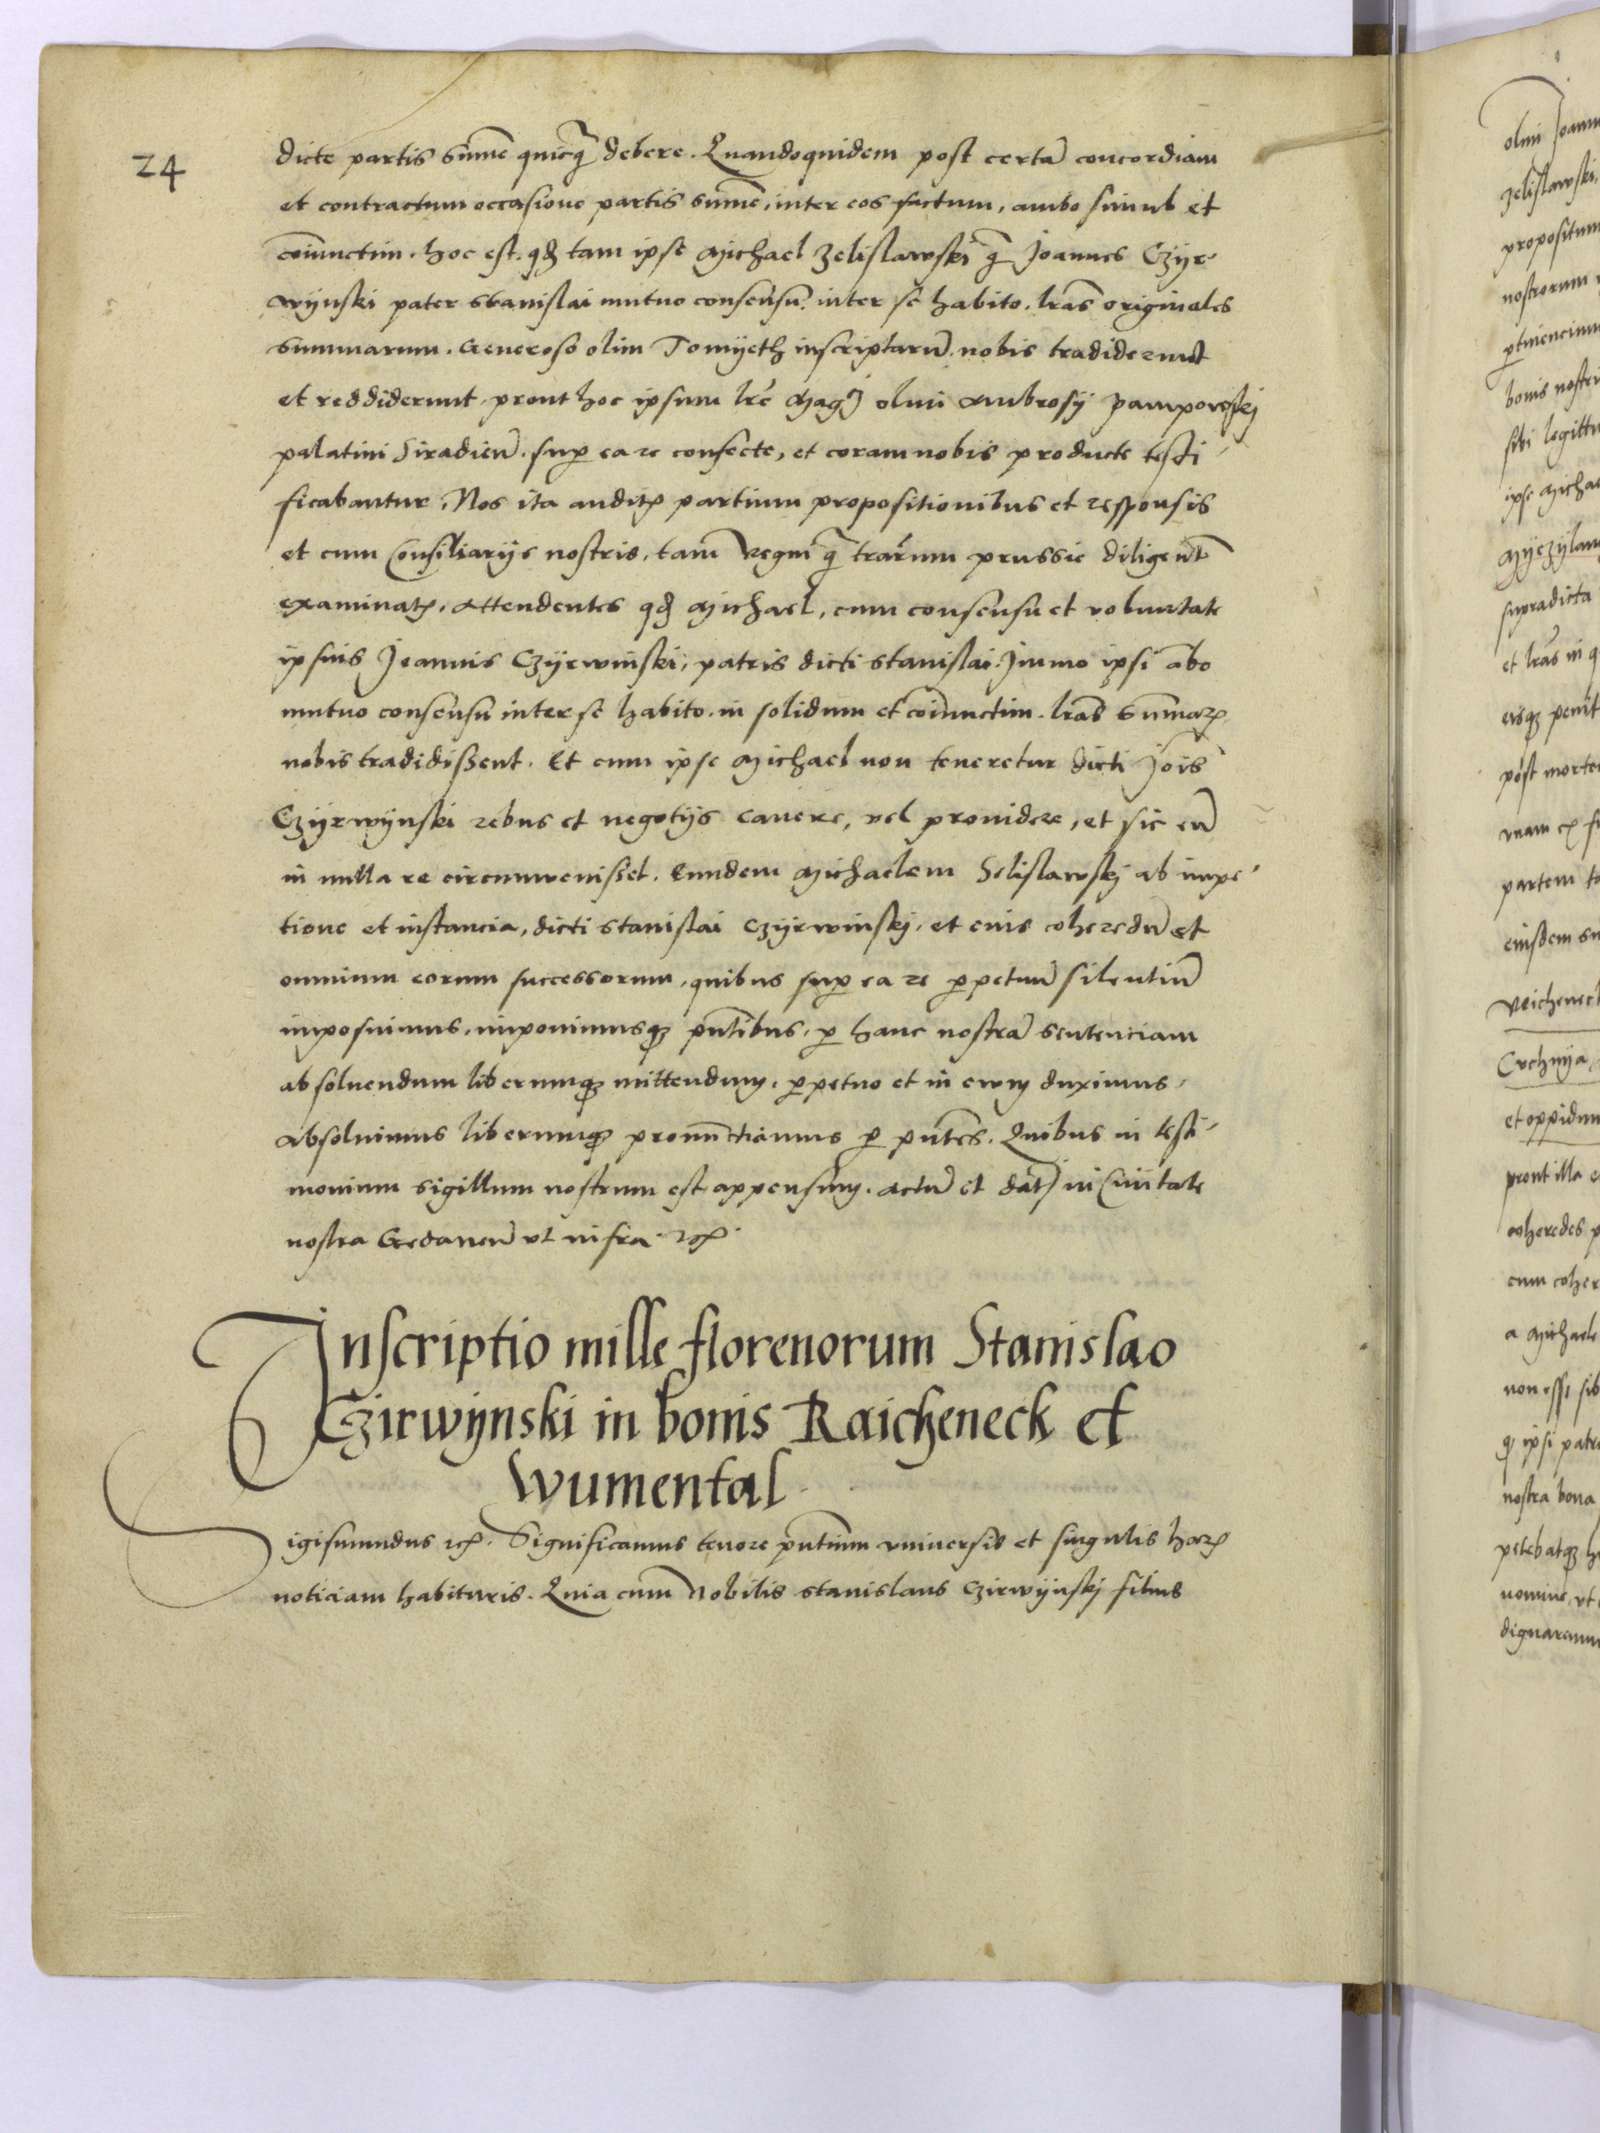 24
dicte partis sum̃e quicq̃ debere. Quandoquidem post certã concordiam
et contractum occasione partis sum̃e, inter eos factum, ambo simul et
coniunctim. hoc est. qđ tam ipse Michael Zelislawski q̃ Joannes Czyr
wynski pater stanislai mutuo consensu inter se habito. l̃ras originales
summarum. Generoso olim Tomyeth inscriptarũ nobis tradiderunt
et reddiderunt prout hoc ipsum l̃re Mag^ci olim Ambrosy pampowskj
palatini Siradieñ. sup ea re confecte, et coram nobis producte testi
ficabantur. Nos ita auditꝭ partium propositionibus et responsis
et cum Consiliarijs nostris, tam Regni q̃ trarum prussie diligent̃
examinatꝭ. Attendentes qđ Michael, cum consensu et voluntate
ipsius Joannis Czyrwinski, patris dicti stanislai. Jmmo ipsi ãbo
mutuo consensu inter se habito. in solidum et coniunctim. l̃ras sum̃aꝝ
nobis tradidissent. Et cum ipse Michael non teneretur dicti Jois
Czyrwynski rebus et negotijs cavere, vel prouidere, et sic eũ
in nulla re circumvenisset. Eundem Michaelem Selislawskj ab impe
tione et instancia, dicti stanislai Czyrwinskj, et eius coheredũ et
omnium eorum successorum, quibus sup ea re ꝑpetuũ silentiũ
imposuimus, imponimusqꝫ pñtibus, ꝑ hanc nostrã sentenciam
absoluendum liberumqꝫ mittendum, ꝑpetuo et in ewm duximus,
Absoluimus liberumqꝫ pronunctiamus ꝑ pñtes. Quibus in testi
monium sigillum nostrum est appensum. Actũ et dat in Ciuitate
nostra Gedaneñ vt infra ⁊cꝭ.
Inscriptio mille florenorum Stanislao
Czirwynski in bonis Raicheneck et
Wumental
Sigismundus ⁊cꝭ. Significamus tenore pñtium vniuersis et singulis haꝝ
noticiam habituris. Quia cum Nobilis stanislaus Czirwynskj filius
olim Joann
Zelislawski,
propositum
nostrorum
ꝑtinencium
bonis nostri
sibi legittu
ipse Micha
supradicta
et l̃ras in q
eisqꝫ penit
post morte
partem
eiusdem su
et oppidum
prout illa
coheredes p
cum coher
a Michaele
non esse sib
ipsi patr
nostra bona
petebatqꝫ h
nomine, vt
dignaremu